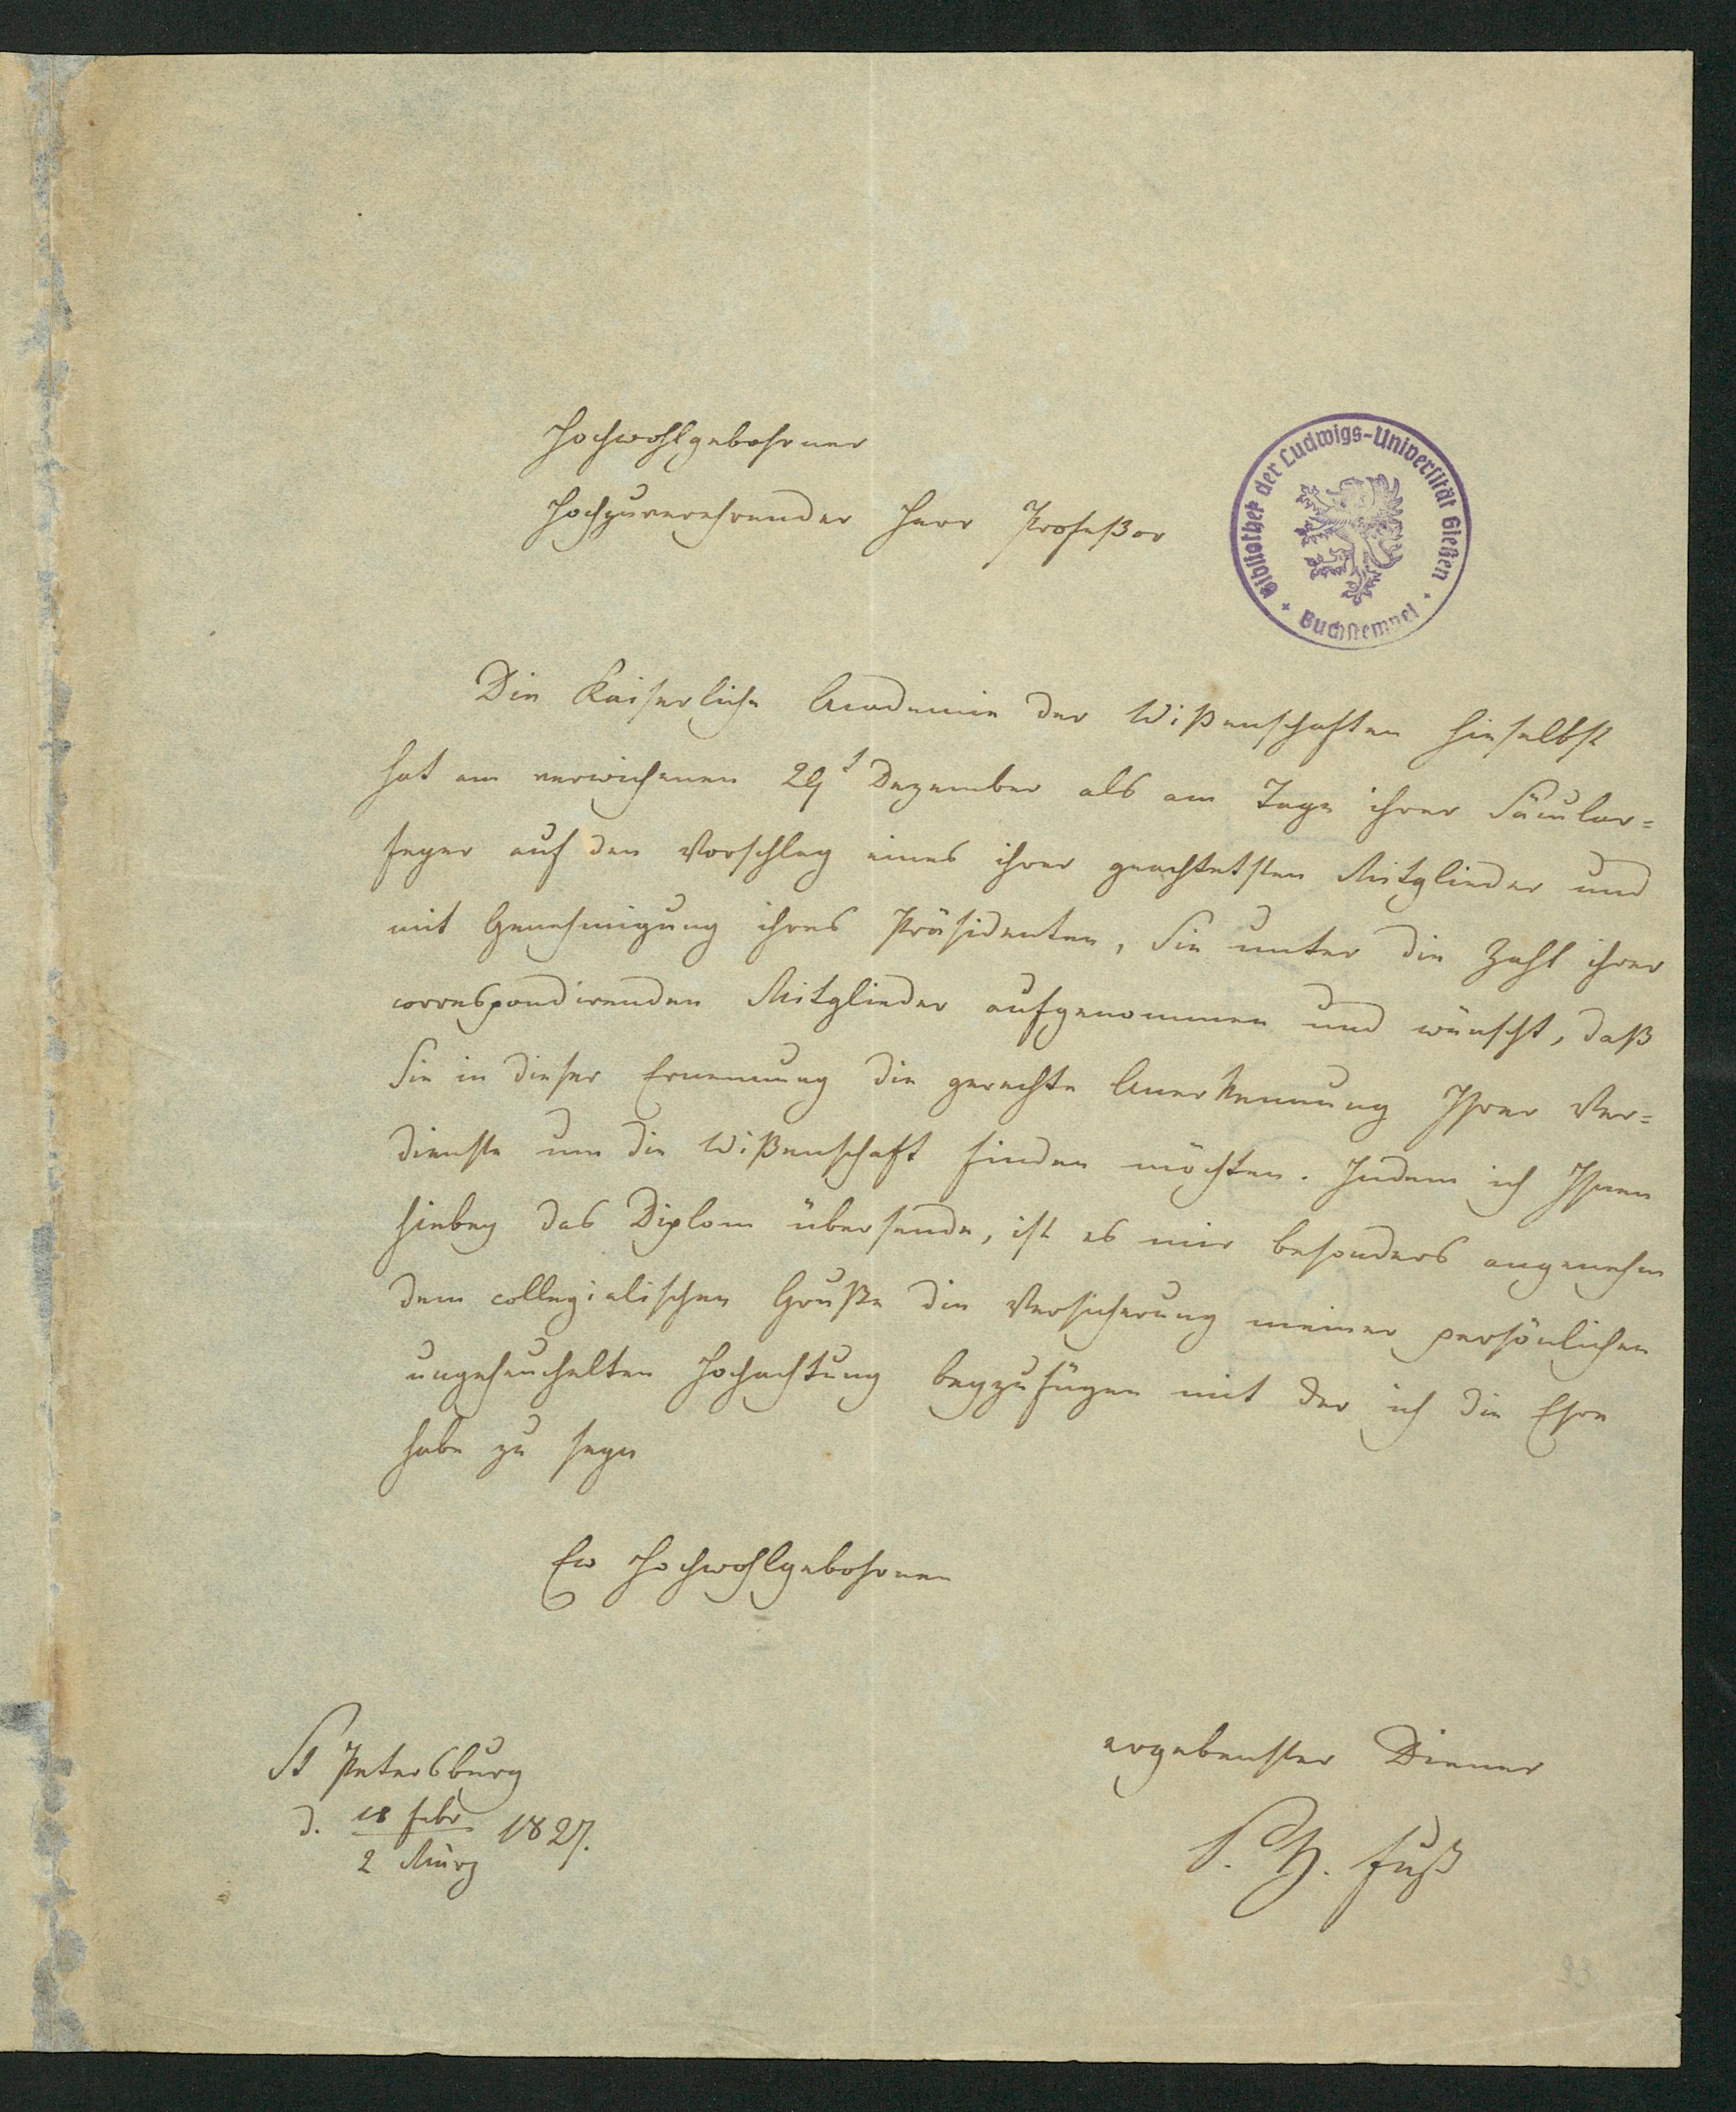 Hochwohlgebohrner
Hochzuverehrender Herr Profeßor
Bibliothek der Ludwigs-Universität Gießen
Buchstempel
Die Kaiserliche Academie der Wißenschaften hieselbst
hat am verwichenen 29t Dezember als am Tage ihrer Säcular=
feyer auf den Vorschlag eines ihrer geachtetsten Mitglieder und
mit Genehmigung ihres Präsidenten, Sie unter die Zahl ihrer
correspondirenden Mitglieder aufgenommen und wünscht, daß
Sie in dieser Ernennung die gerechte Anerkennung Ihrer Ver=
dienste um die Wißenschaft finden möchten. Indem ich Ihnen
hiebey das Diplom übersende, ist es mir besonders angenehm
dem collegialischen Gruße die Versicherung meiner persönlichen
ungeheuchelten Hochachtung beyzufügen mit der ich die Ehre
habe zu seyn
Ew Hochwohlgebohrnen
ergebenster Diener
P. H. Fuß
St Petersburg
d. 18 Febr / 2 März 1827.